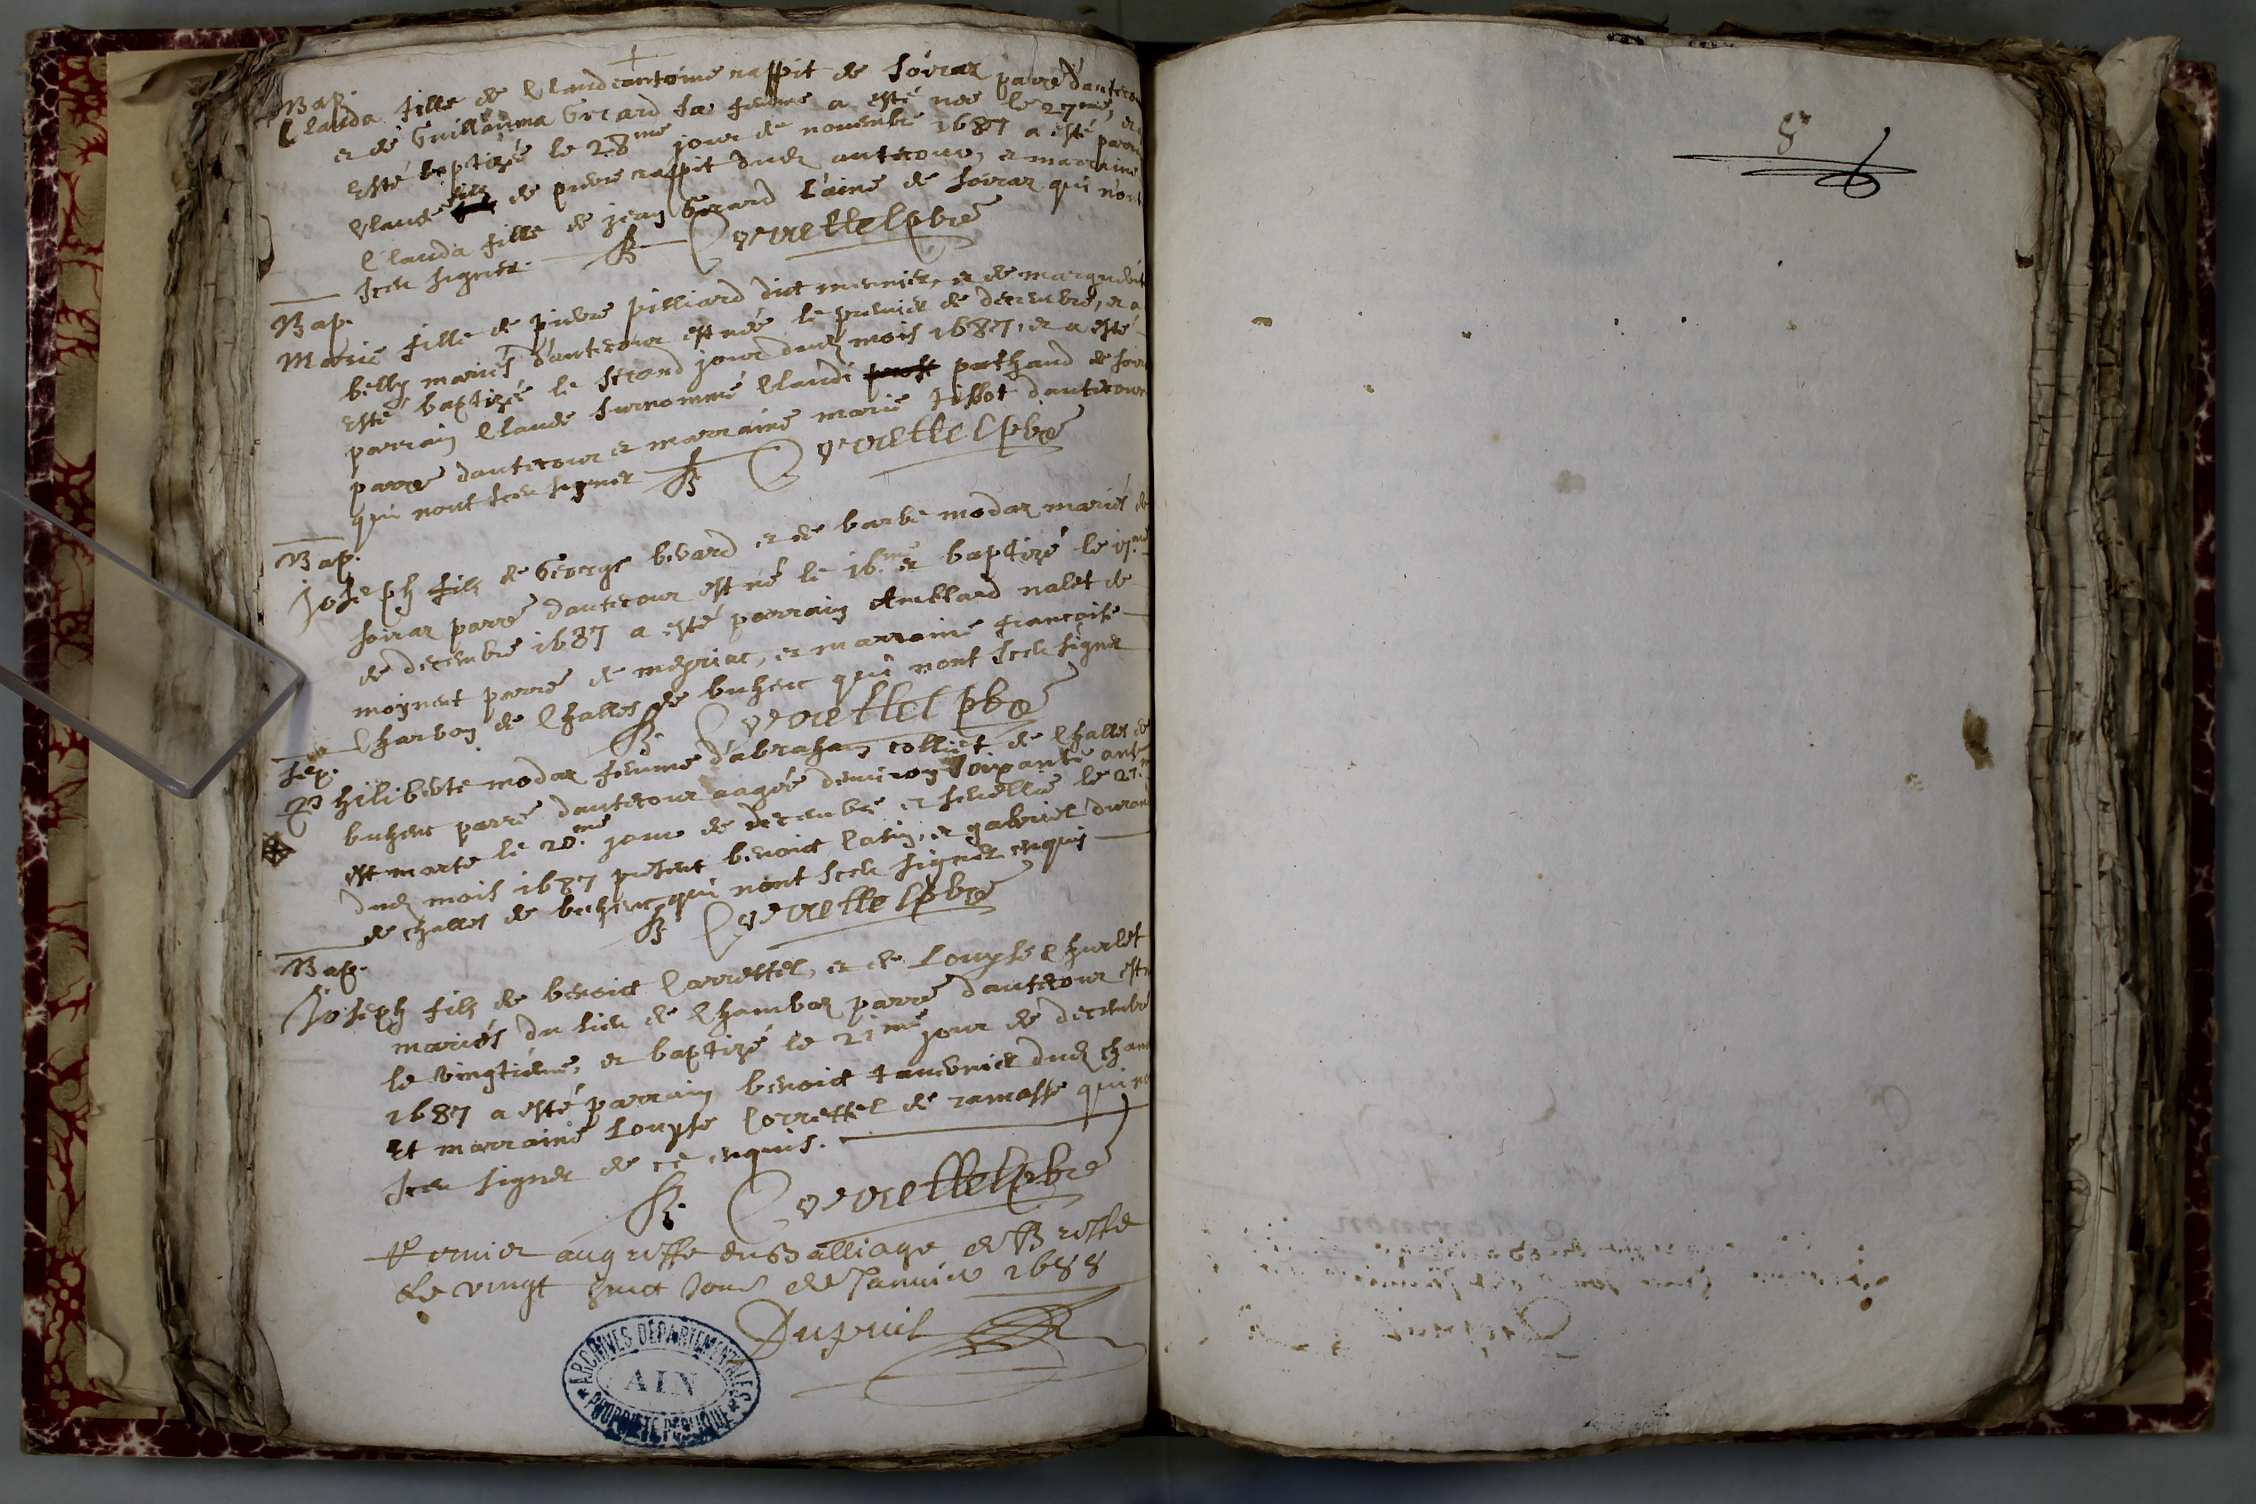 Bap.
Clauda fille de Claudeantoine raffit de soiraz parre d'antecour
et de Guillauma Gerard sa femme a esté née le 27me, et a
esté baptizée le 28me jour de novembre 1687 a esté parrain
Claude fils de pierre raffit dud antecour, et marraine
Clauda fille de jean Gerard l'aine de soiraz qui n'ont
sceu signer.
Bap.
Marie fille de pierre pilliard dict meunier, et de marguerite
belly mariés d'antecour est née le premier de decembre, et a
esté baptizée le second jour dud mois 1687, et a esté
parrain Claude surnommé Claudi pathaud de soiraz
parre d'antecour et marraine marie tissot d'antecour
qui nont sceu signer
Bap.
Joseph fils de George bevard et de barbe modaz mariés de
soiraz parre dantecour est né le 16. et baptizé le
de decembre 1687 a esté parrain Amblard nalet de
moynet parre de meyriat, et marraine francoise
Charbon de Challes de buhenc qui nont sceu signer
Sep.
Philiberte modaz femme d'abraham colliet de Challes de
buhenc parre dantecour aagée denviron soixante ans
est morte le 20.me jour de decembre et sevellie le 21.me
dud mois 1687 present benoict latin, et gabriel durand
de challes de buhenc qui nont sceu signer enquis
Bap.
Joseph fils de benoict Carrettel, et de Louyse Churlet
mariés du lieu de Chambaz parre dantecour est né
le vingtieme, et baptizé le 21me jour de decembre
1687 a esté parrain benoict tavernier dud
Et marraine Louyse Correttel de ramasse qui
sceu signer de ce enquis.
Remier au greffe du Balliage de Bresse
Le vingt huict Jour de Janvier 1688
Dupuis
ARCHIVES DÉPARTEMENTALES
AIN
PROPRIÉTÉ PUBLIQUE